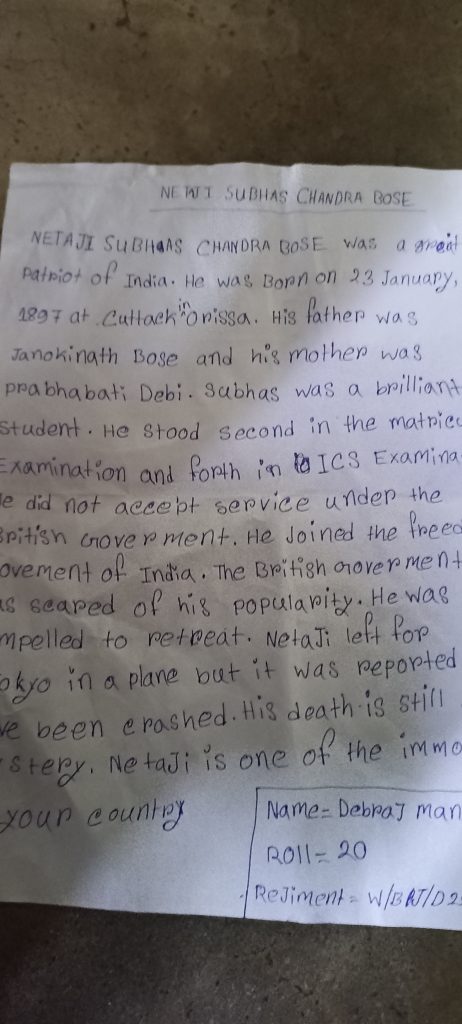 NETAJI SUBHAS CHANDRA BOSE
NETAJI SUBHAAS CHANDRA BOSE was a great
Patriot of India. He was Born on 23 January,
1897 at Cuttack in Orissa. His father was
Janokinath Bose and his mother was
prabhabati Debi. Subhas was a brilliant
student. He stood second in the matric
Examination and forth in ICS Examina
e did not accept service under the
British Goverment. He Joined the freed
ovement of India. The British Goverment
as scared of his popularity. He was
mpelled to retreat. NetaJi left for
okyo in a plane but it was reported
ve been crashed. His death is still
stery. NetaJi is one of the immo
your country
Name = DebraJ man
Roll = 20
ReJiment = W/BAT/D2